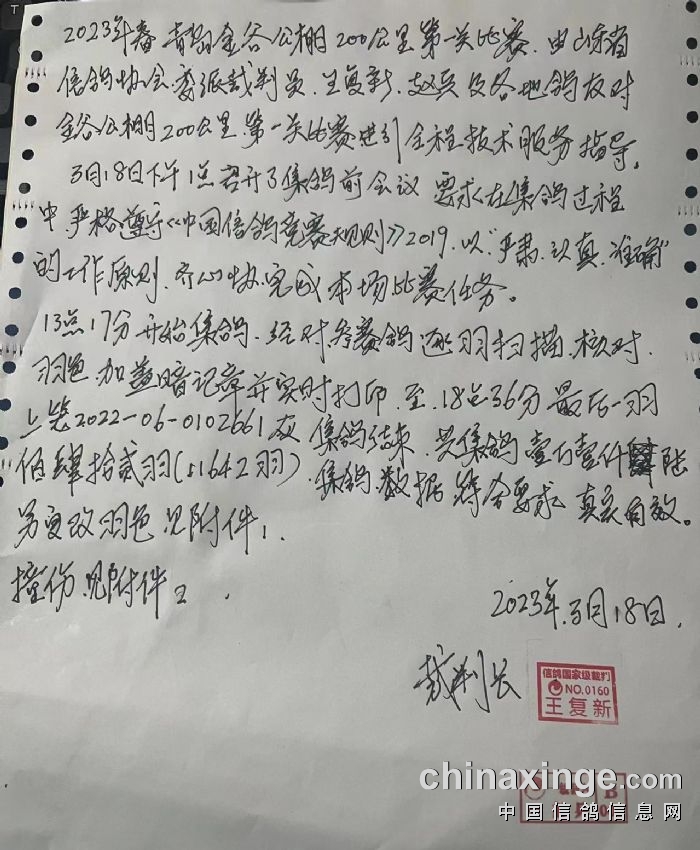 2023年春 青岛金谷公棚200公里第一关比赛.由山东省
信鸽协会委派裁判员.王复新.赵兵及各地鸽友对
金谷公棚200公里第一关比赛进行全程技术服务指导。
3月18日下午1点召开了集鸽前会议 要求在集鸽过程
中.严格遵守《中国信鸽竞赛规则》2019.以"严肃.认真.准确"
的工作原则.齐心协完成本场比赛任务。
13点17分开始集鸽.经对参赛鸽逐羽扫描.核对.
羽色.加盖暗记章并实时打印.至18点36分最后一羽
上笼2022-06-0102661灰 集鸽结束.共集鸽壹万壹仟陆
佰肆拾贰羽(11642羽).集鸽数据符合要求 真实有效。
另更改羽色见附件1.
撞伤.见附件2.
2023年.3月18日.
裁判长
信鸽国家级裁判
NO.0160
王复新
B
chinaxinge.com
中国信鸽信息网